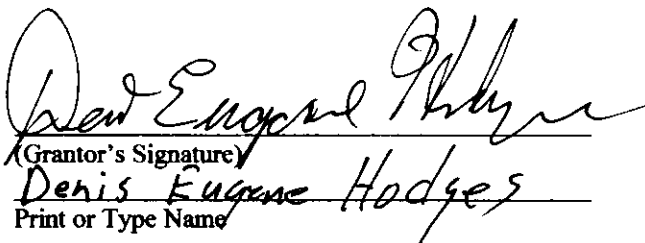 Eugene
(Grantor's Signature)
Denis Eugene Hodges
Print or Type Name